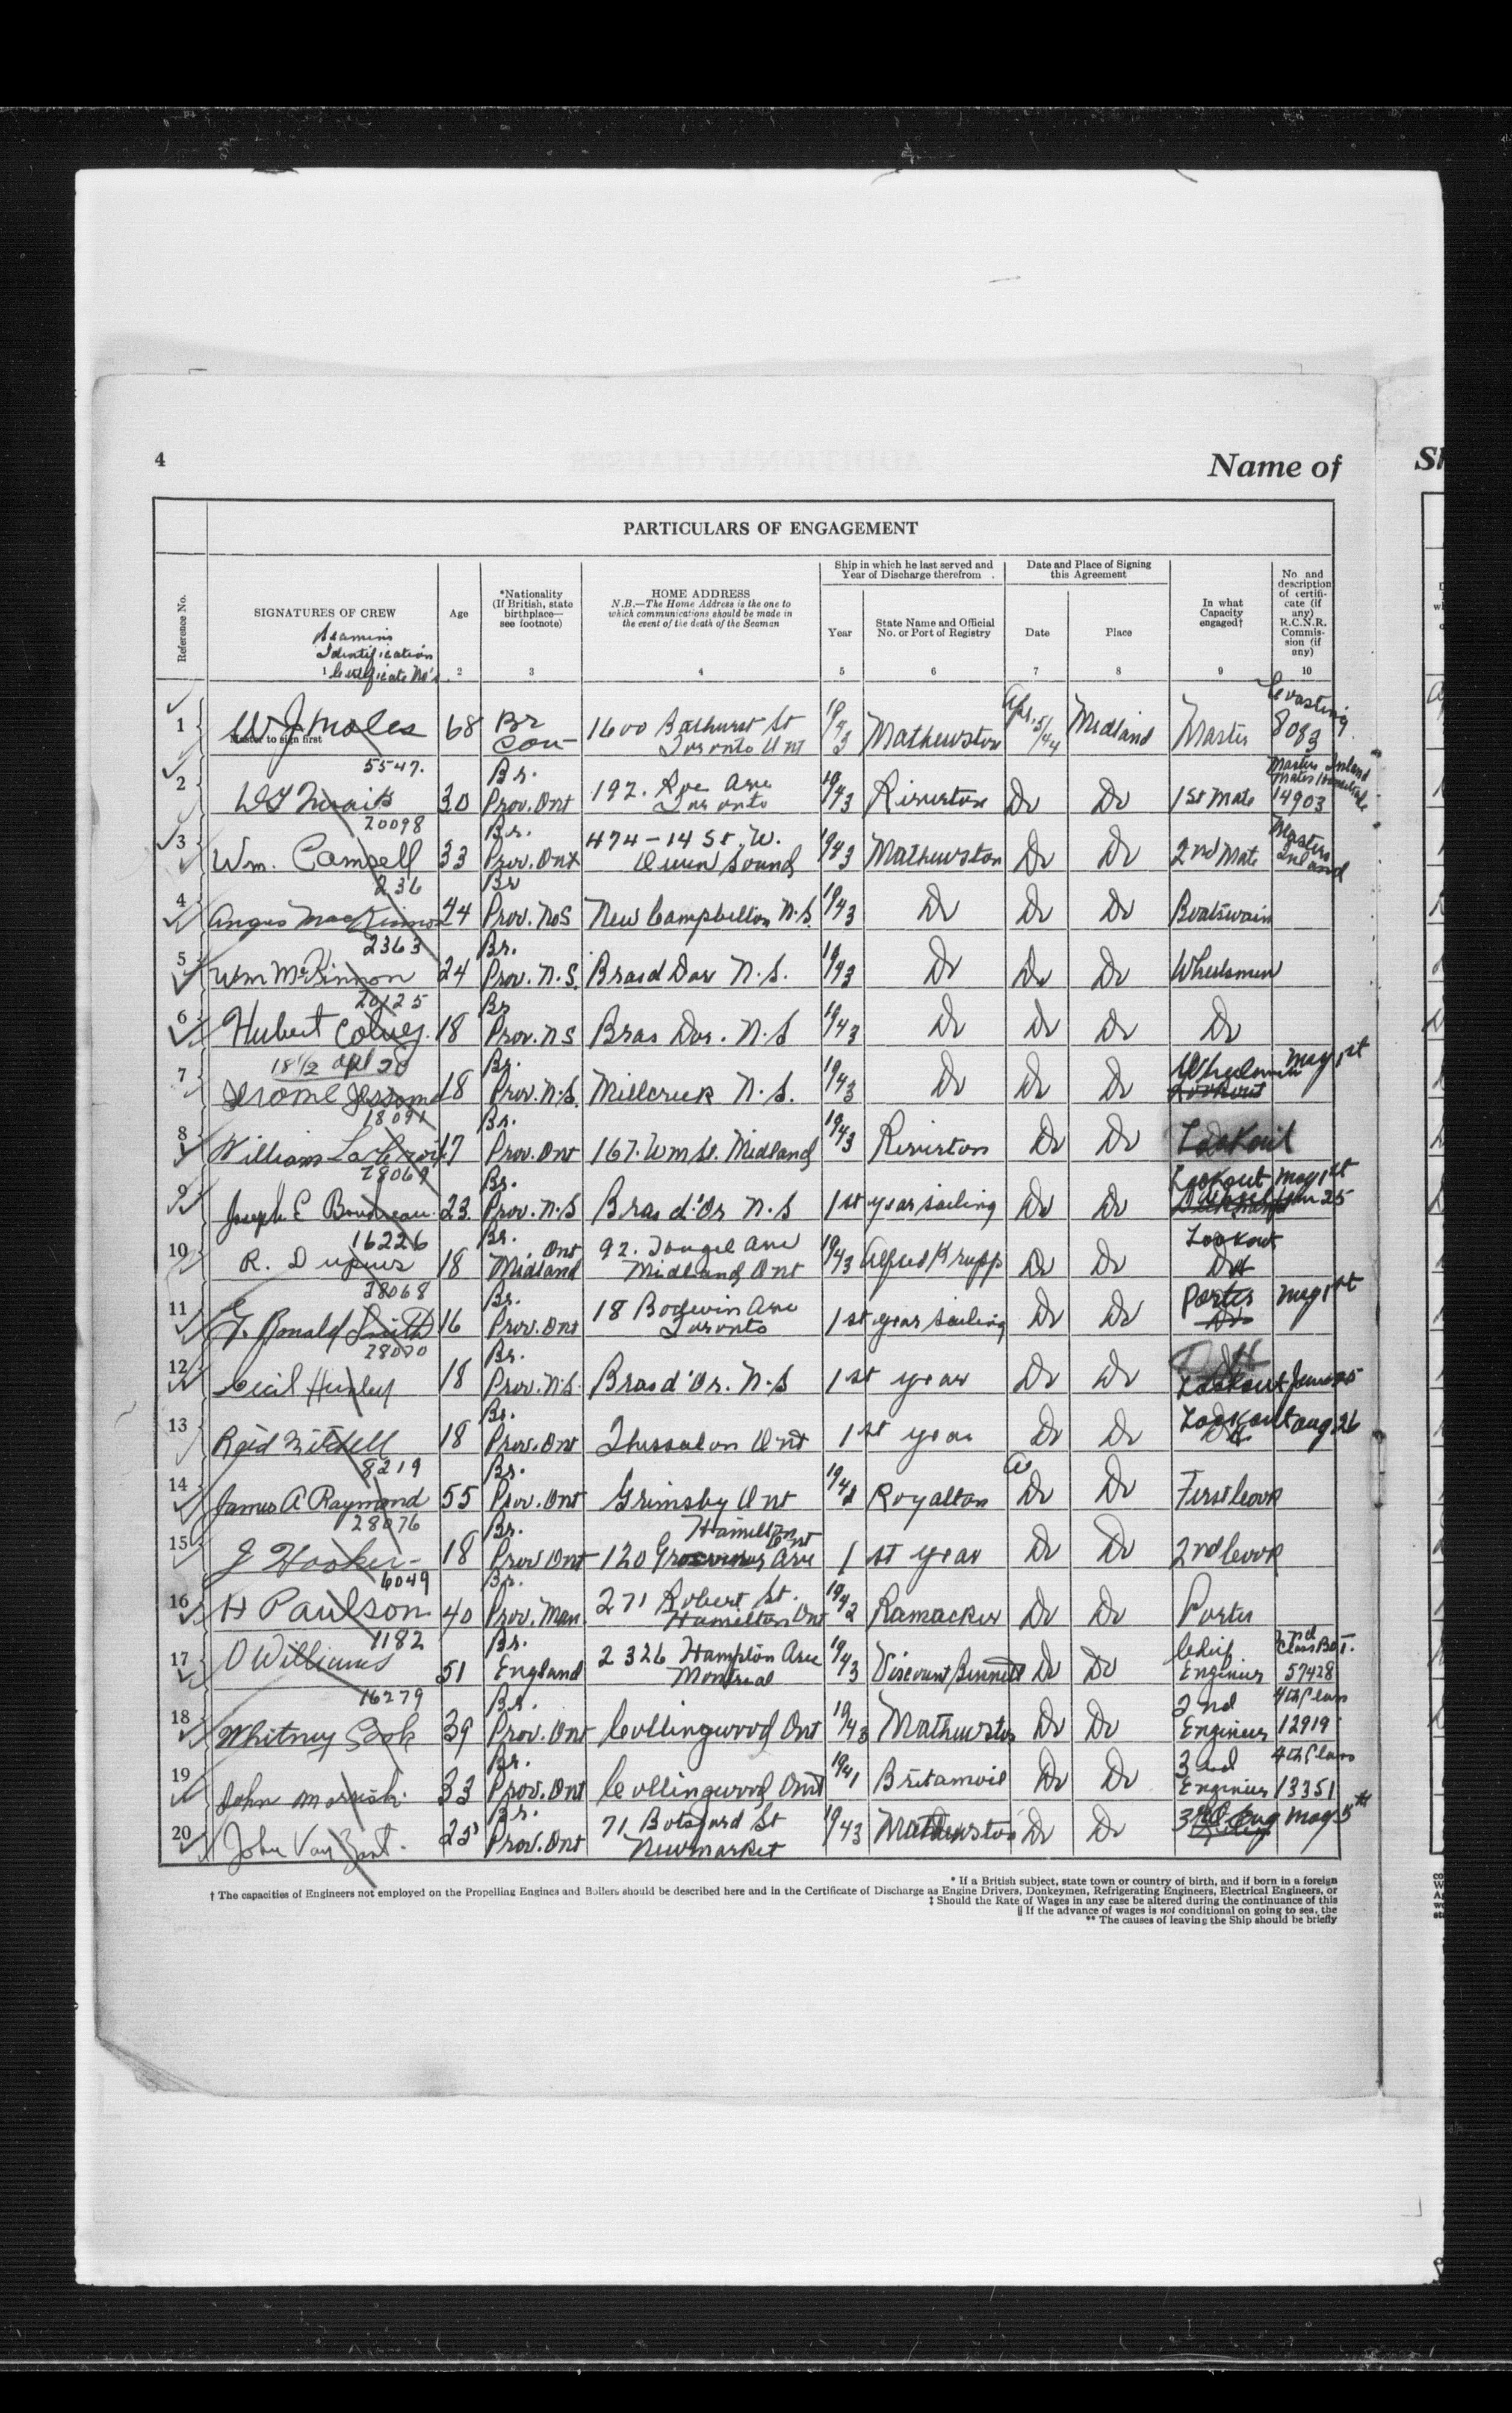 4
Name of
PARTICULARS OF ENGAGEMENT
Reference No.
SIGNATURES OF CREW
Seamens
Identification
1 Certificate No's.
Age
2
*Nationality
(If British, state
birthplace—
see footnote)
3
HOME ADDRESS
N.B.—The Home Address is the one to
which communications should be made in
the event of the death of the Seaman
4
Ship in which he last served and
Year of Discharge therefrom .
Year
5
State Name and Official
No. or Port of Registry
6
Date and Place of Signing
this Agreement
Date
7
Place
8
In what
Capacity
engaged†
9
No and
description
of certifi-
cate (if
any)
R.C.N.R.
Commis-
sion (if
any)
10
1 W J Moles 68 Br 1600 Bathurst St Toronto Ont 19/43 Mathewston Apl. 5/44 Midland Master 8083
Master to sign first
5547.
2 30 Br. Prov. Ont 192. Roe Ave Toronto 19/43 Riverton Do Do 1st Mate Masters Inland 14903
20098
3 Wm. Camsell 33 Br. Prov. Ont 474-14 St. W. Owen Sound 19/43 Mathewston Do Do 2nd Mate Masters Inland
236
4 Angus MacKinnon 44 Br Prov. NoS New Campbellton N.S. 19/43 Do Do Do Boatswain
2363
5 Wm McKinnon 24 Br. Prov. N.S. Brasd Dor N.S. 19/43 Do Do Do Wheelsman
20125
6 Hubert 18 Br Prov. NS Bras Dor. N.S 19/43 Do Do Do Do
18 1/2 Apl 20
7 Jerome Jessome 18 Br. Prov. N.S. Millcreek N.S. 19/43 Do Do Do Wheelsman May 1st Lookout
18091
8 William 17 Br. Prov. Ont 167. Wm St. Midland 19/43 Riverton Do Do Lookout
28069
9 Joseph E Boudreau 23 Br. Prov. N.S Bras d'Or N.S 1st year sailing Do Do Lookout May 1st
16226
10 R. Dupuis 18 Br. Ont Midland 92. Ave Midland Ont 19/43 Alfred Krupp Do Do Lookout
28068
11 Ronald Smith 16 Br. Prov. Ont 18 Ave Toronto 1st year sailing Do Do Porter May 1st Do
28070
12 Cecil 18 Br. Prov. N.S. Bras d'Or. N.S 1st year Do Do Lookout June 25
13 Reid Mitchell 18 Br. Prov. Ont Thessalon Ont 1st year Do Do Lookout Aug 26
8219
14 James A Raymond 55 Br. Prov. Ont Grimsby Ont Royalton Do Do First Cook
28076
15 J Hooker 18 Br. Prov Ont 120 Grosvenor Ave Hamilton Ont 1st year Do Do 2nd Cook
6049
16 H Paulson 40 Br. Prov. Man. 271 Robert St. Hamilton Ont 19/42 Ramacker Do Do Porter
1182
17 O Williams 51 Br. England 2326 Hampton Ave Montreal 19/43 Viscount Bennett Do Do Chief Engineer 2nd Class BoT. 57428
16279
18 Whitney Cook 39 Br. Prov. Ont Collingwood Ont 19/43 Mathewston Do Do 2nd Engineer 4th Class 12919
19 John 33 Br. Prov. Ont Collingwood Ont 19/41 Britamoil Do Do 3rd Engineer 4th Class 13351
20 John Van Zant. 25 Br. Prov. Ont 71 Botsford St Newmarket 19/43 Mathewston Do Do Eng May 5th
* If a British subject, state town or country of birth, and if born in a foreign
† The capacities of Engineers not employed on the Propelling Engines and Boilers should be described here and in the Certificate of Discharge as Engine Drivers, Donkeymen, Refrigerating Engineers, Electrical Engineers, or
‡ Should the Rate of Wages in any case be altered during the continuance of this
|| If the advance of wages is not conditional on going to sea, the
** The causes of leaving the Ship should be briefly